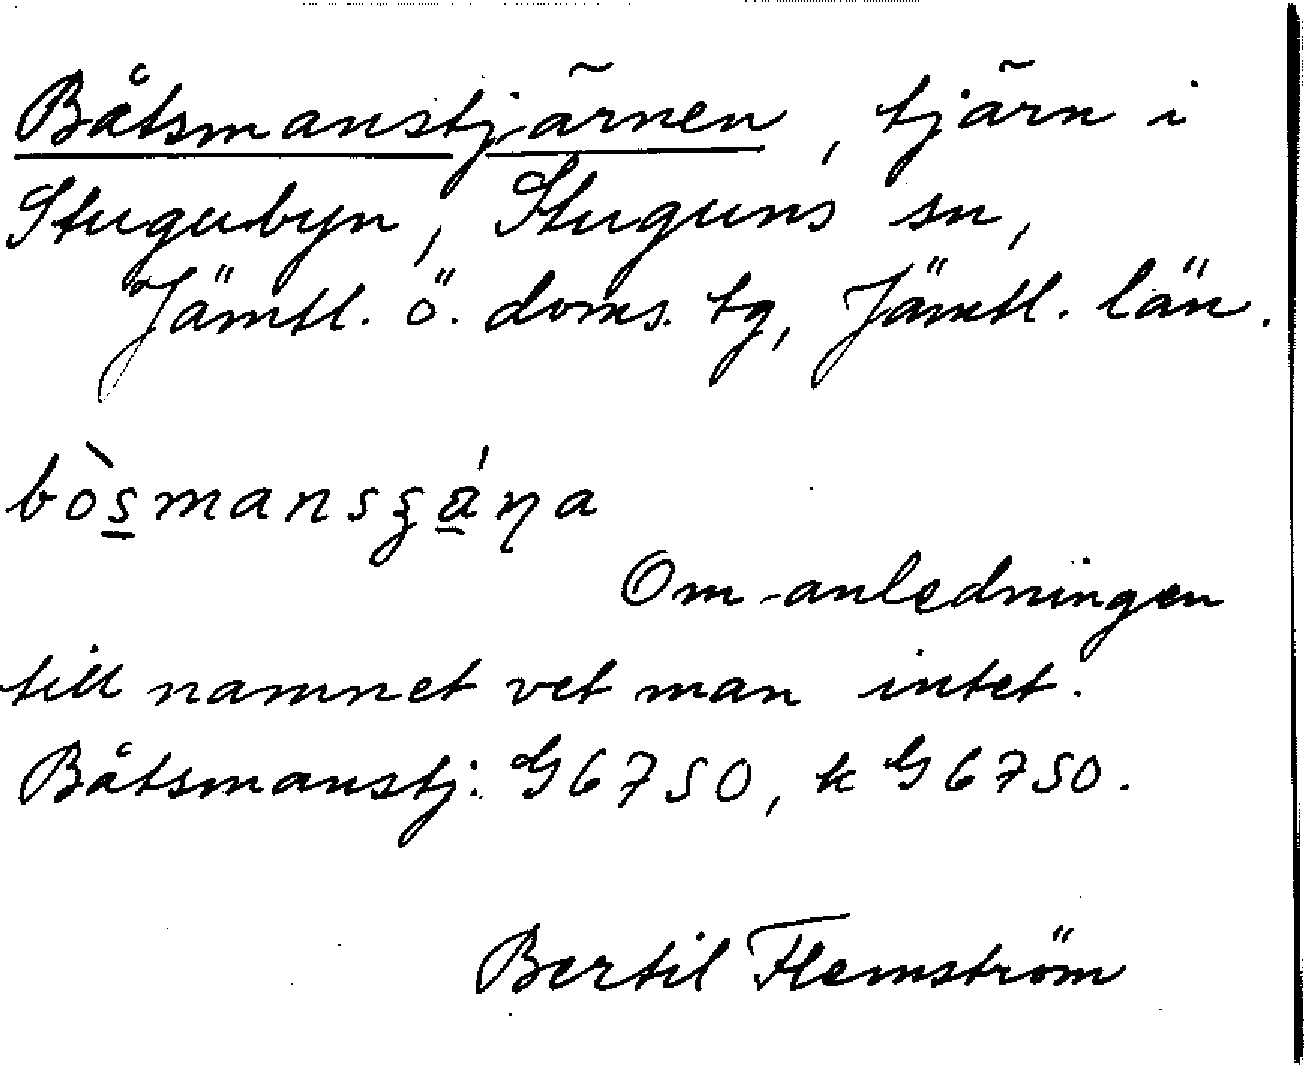 Båtsmanstjärnen, tjärn i
Stugubyn, Stuguns sn,
Jämtl. ö. doms. tg, Jämtl. län.
Om anledningen
till namnet vet man intet.
Båtsmanstj: G6750, k G6750.
Bertil Flemström